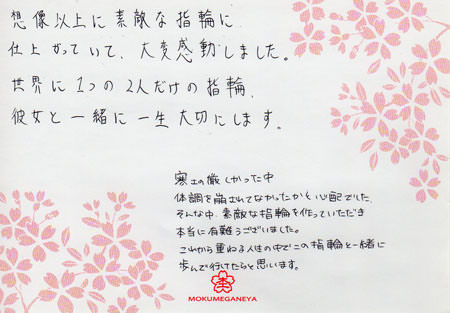 想像以上に素敵な指輪に
仕上がっていて、大変感動しました。
世界に1つの2人だけの指輪、
彼女と一緒に一生大切にします。
寒さの厳しかった中
体調を崩されてなかったかと心配でした。
そんな中、素敵な指輪を作っていただき
本当に有難うございました。
これから重ねる人生の中でこの指輪と一緒に
歩んで行けたらと思います。
MOKUMEGANEYA